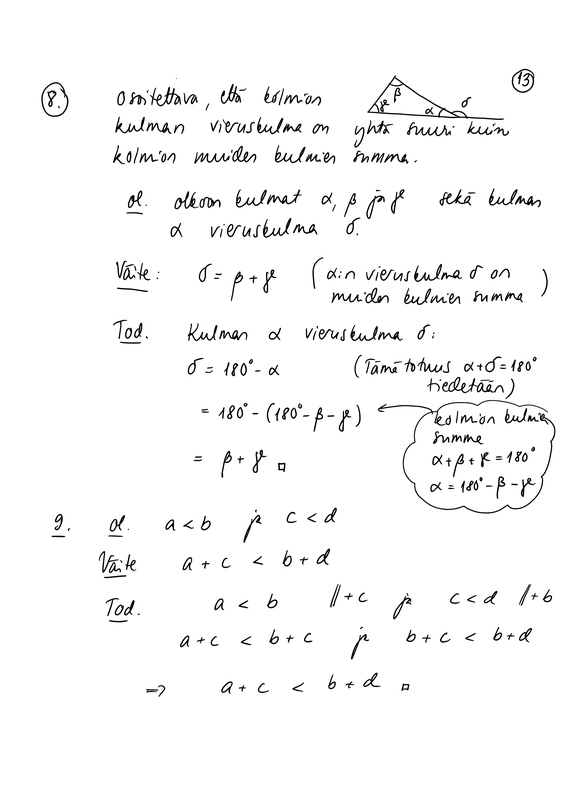 13
8. Osoitettava, että kolmion
β γ α δ
kulman vieruskulma on yhtä suuri kuin
kolmion muiden kulmien summa.
ol. olkoon kulmat α, β ja γ sekä kulman
α vieruskulma δ.
Väite: δ = β + γ (α:n vieruskulma δ on
muiden kulmien summa)
Tod. Kulman α vieruskulma δ:
δ = 180° - α (Tämä totuus α+δ=180°
tiedetään)
= 180° - (180° - β - γ)
kolmion kulmien
summa
α + β + γ = 180°
α = 180° - β - γ
= β + γ □
9. ol. a < b ja c < d
Väite a + c < b + d
Tod. a < b ||+c ja c < d ||+b
a + c < b + c ja b + c < b + d
⇒ a + c < b + d □